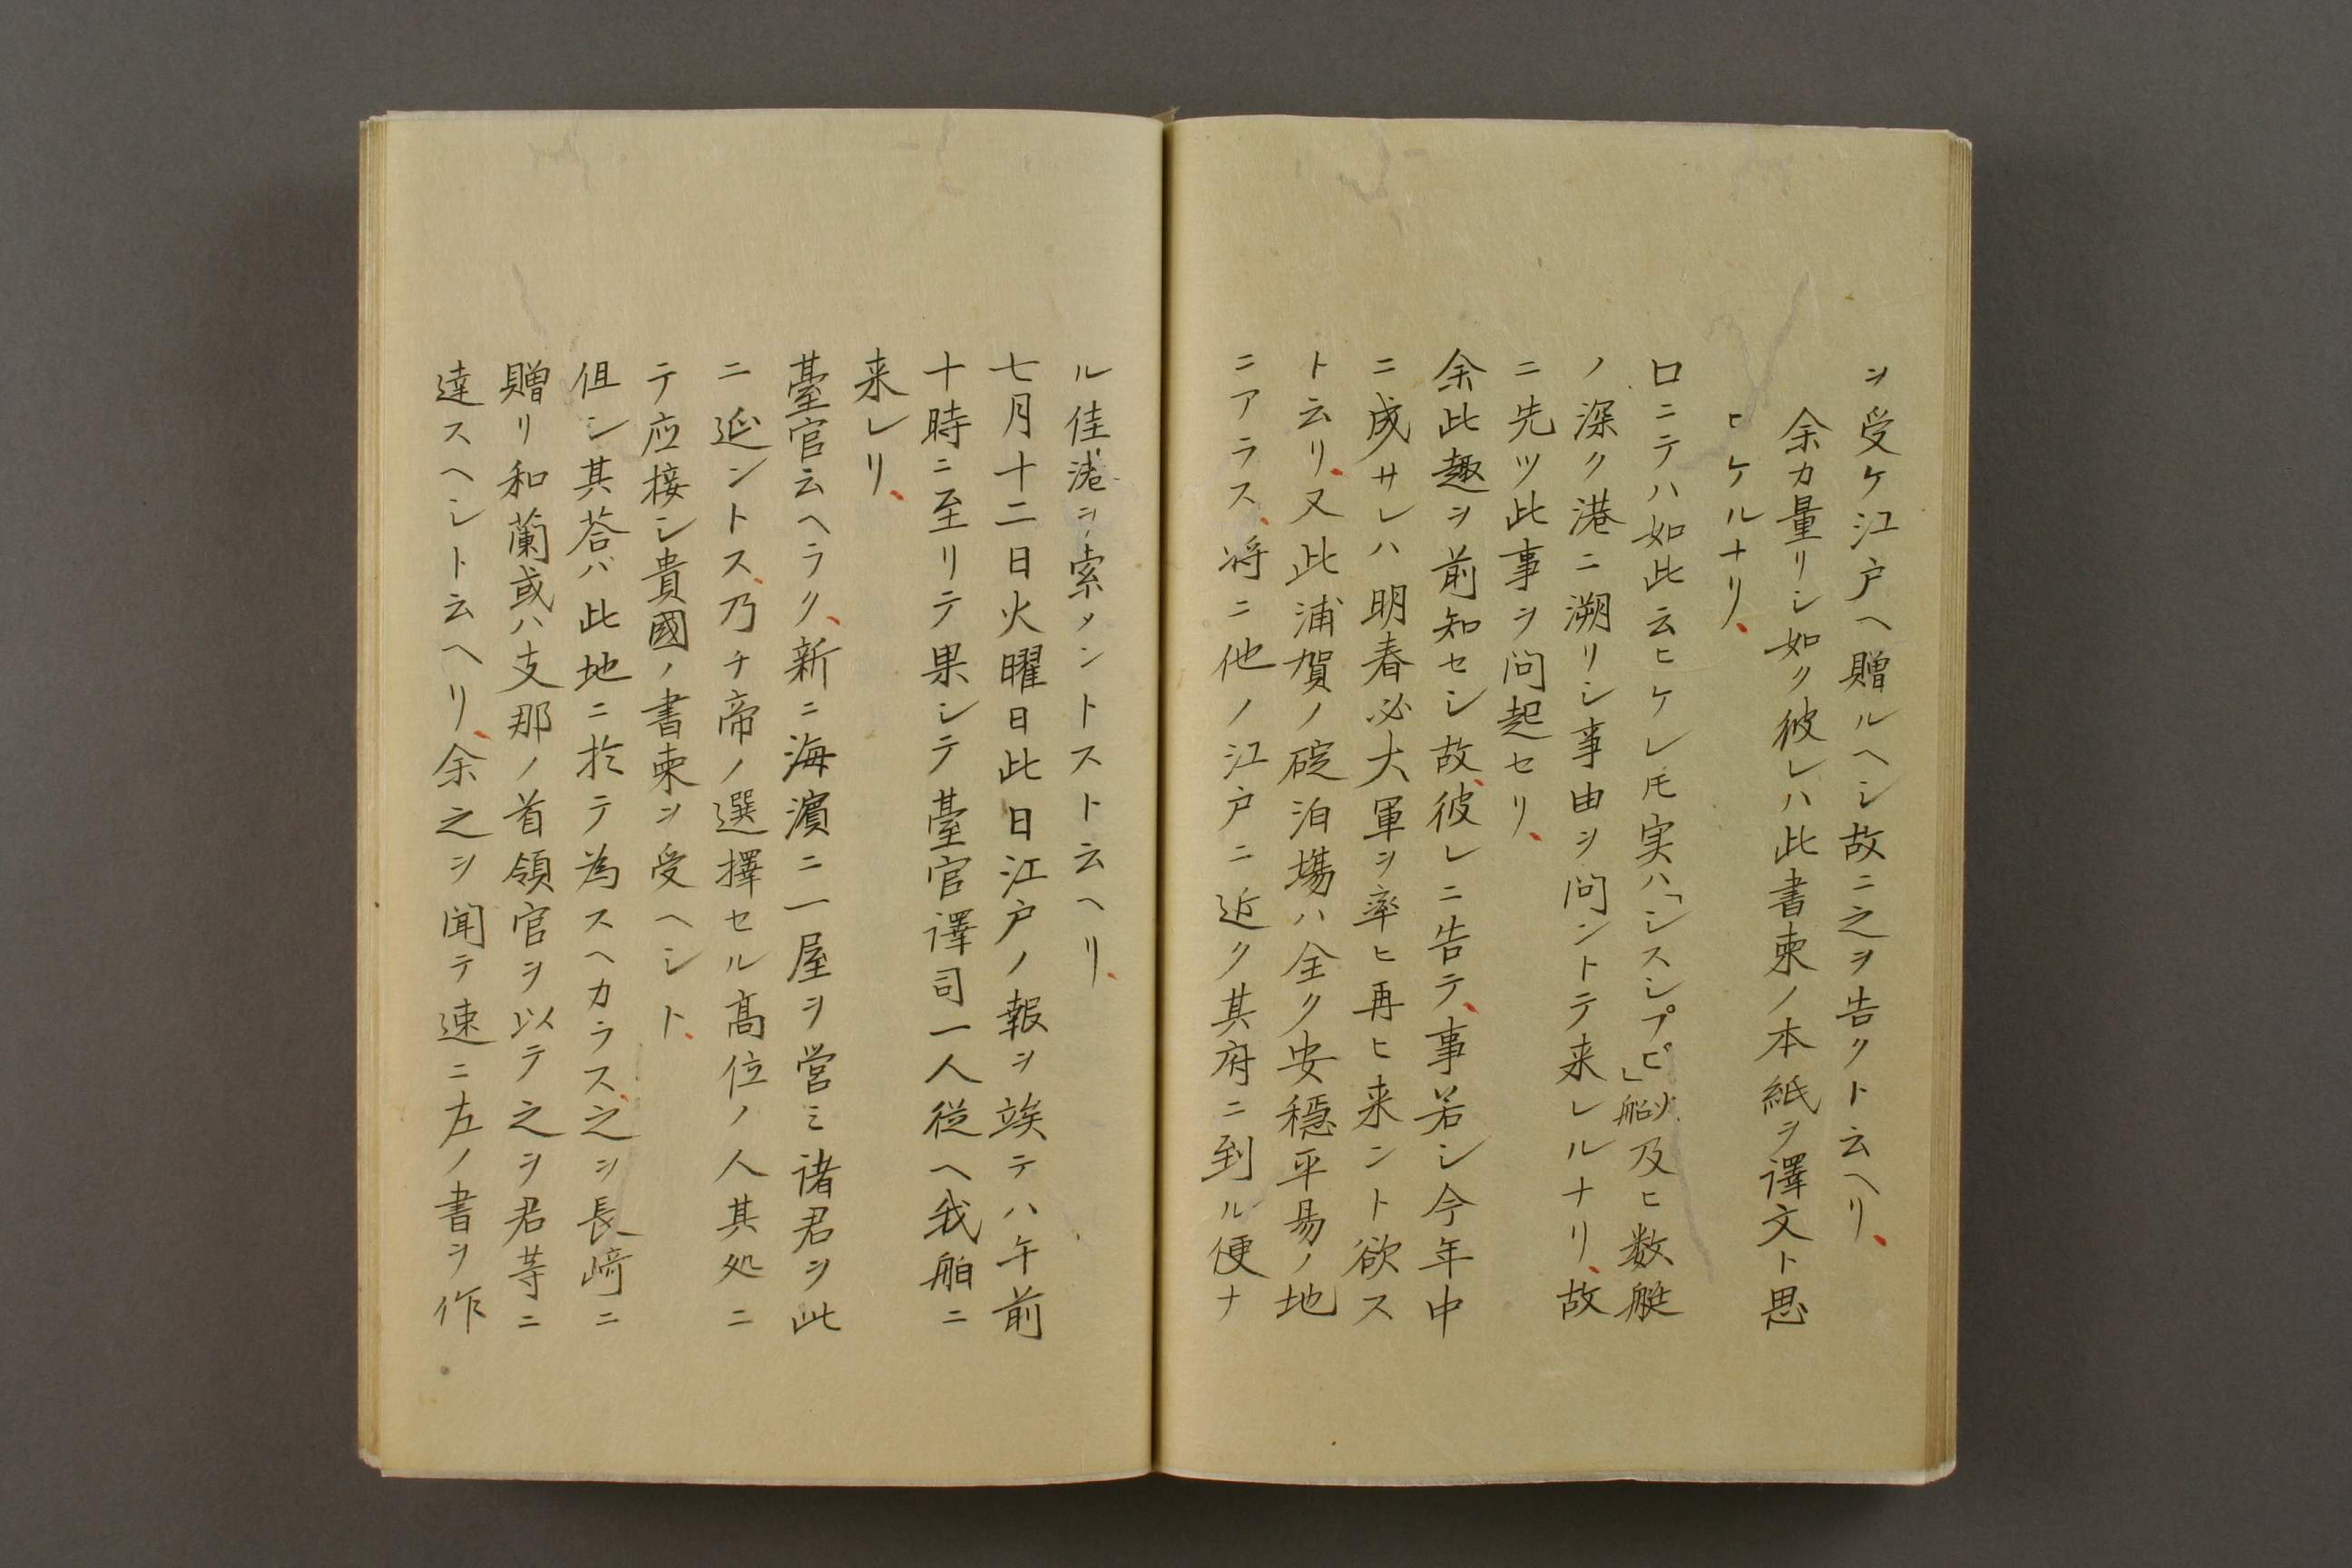 ヲ受ケ江戸ヘ贈ルヘシ故ニ之ヲ告クト云ヘリ、
余カ量リシ如ク彼レハ此書柬ノ本紙ヲ譯文ト思
ヒケルナリ、
口ニテハ如此云ヒケレ𪜈実ハ「シスシプピ」火船及ヒ数艇
ノ深ク港ニ溯リシ事由ヲ问ントテ来レルナリ、故
ニ先ツ此事ヲ问起セリ、
余此趣ヲ前知セシ故、彼レニ告テ、事若シ今年中
ニ成サレハ明春必大軍ヲ率ヒ再ヒ来ント欲ス
ト云リ、又此浦賀ノ碇泊場ハ全ク安穏平易ノ地
ニアラス、将ニ他ノ江戸ニ近ク其府ニ到ル便ナ
ル佳港ヲ索メントスト云ヘリ、
七月十二日火曜日此日江戸ノ報ヲ竢テハ午前
十時ニ至リテ果シテ臺官譯司一人従ヘ我舶ニ
来レリ、
臺官云ヘラク、新ニ海濵ニ一屋ヲ営ミ諸君ヲ此
ニ延ントス、乃チ帝ノ選擇セル髙位ノ人其処ニ
テ应接シ貴國ノ書柬ヲ受ヘシト、
伹シ其荅バ此地ニ於テ為スヘカラス、之ヲ長﨑ニ
贈リ和蘭或ハ支那ノ首領官ヲ以テ之ヲ君等ニ
達スヘシト云ヘリ、余之ヲ聞テ速ニ左ノ書ヲ作